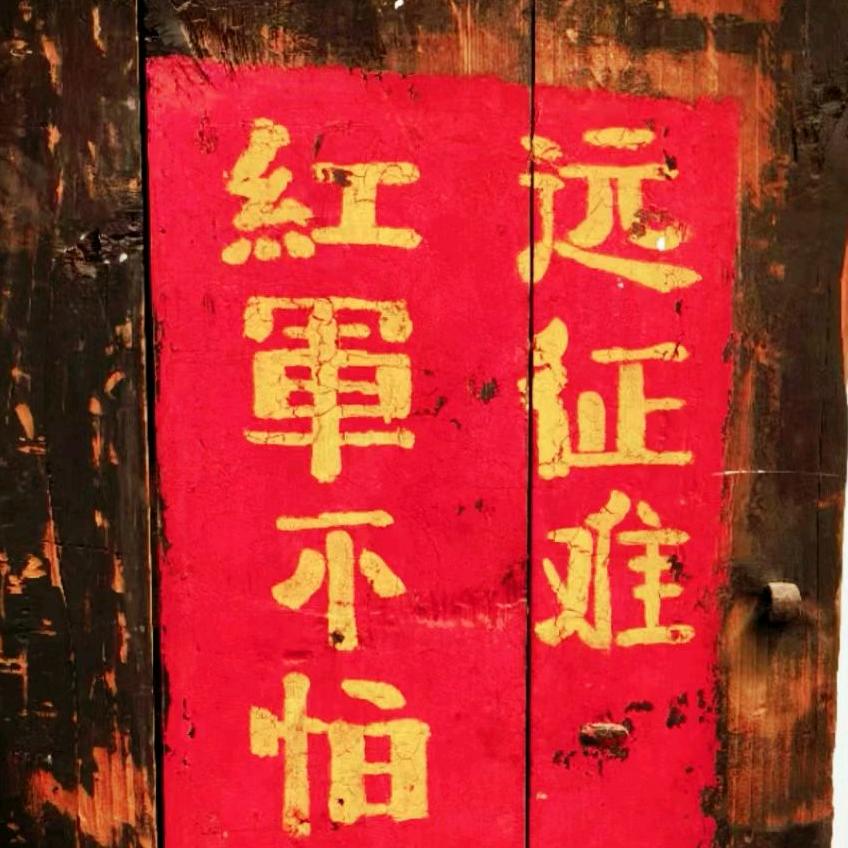 紅軍不怕
远征难